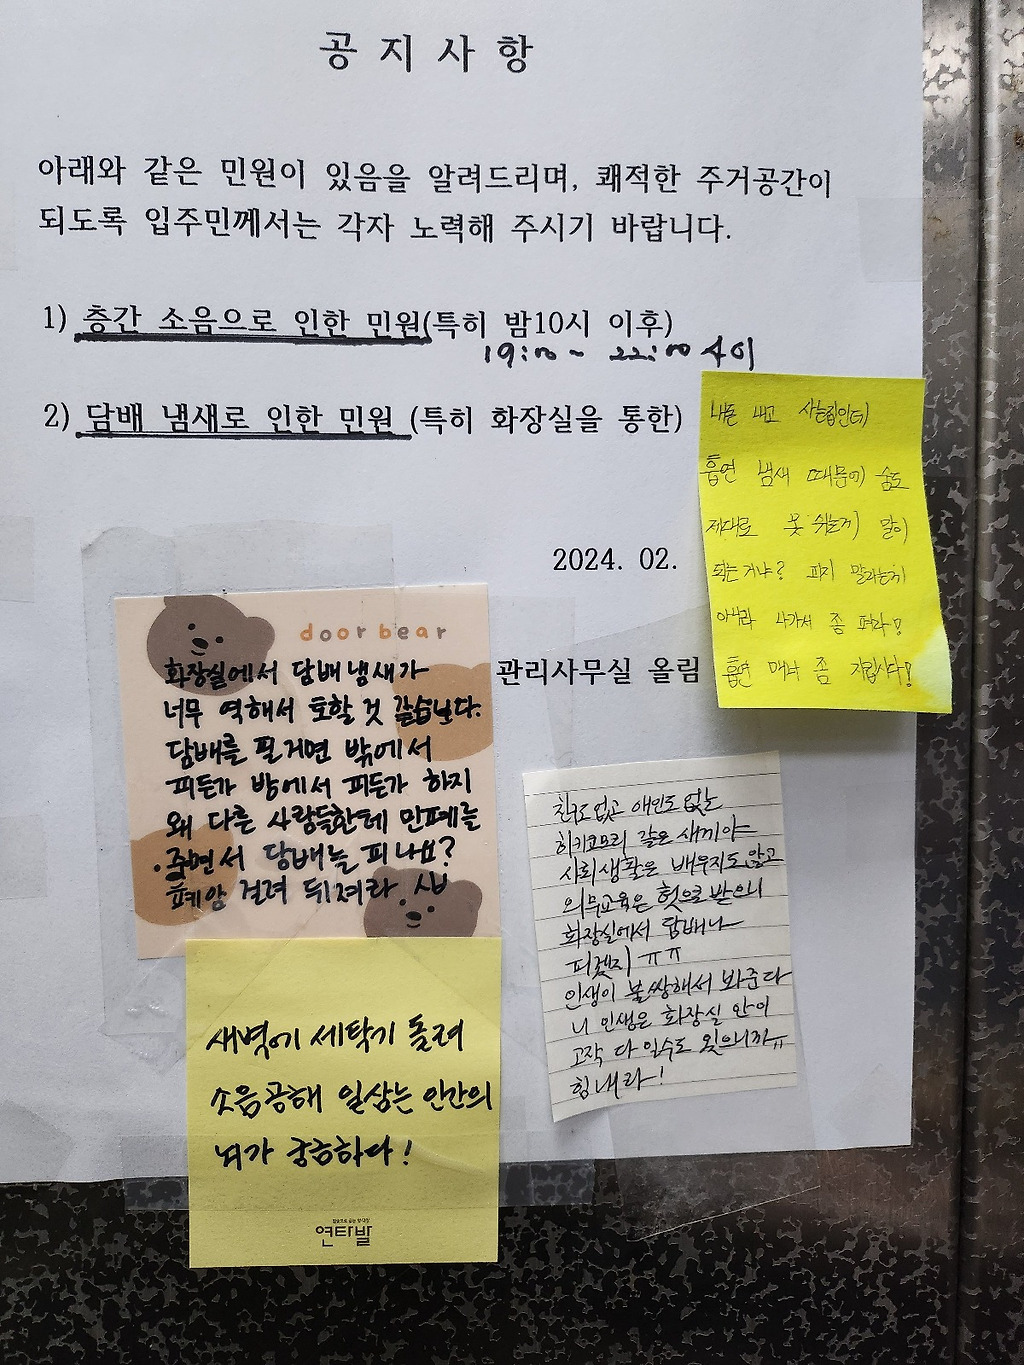 공 지 사 항
아래와 같은 민원이 있음을 알려드리며, 쾌적한 주거공간이
되도록 입주민께서는 각자 노력해 주시기 바랍니다.
1) 층간 소음으로 인한 민원(특히 밤10시 이후)
19:00 ~ 22:00 사이
2) 담배 냄새로 인한 민원 (특히 화장실을 통한)
2024. 02.
관리사무실 올림
내돈 내고 사는집인데
흡연 냄새 때문에 숨도
제대로 못 쉬는게 말이
되는거냐? 피지 말라는게
아니라 나가서 좀 펴라!
흡연 매너 좀 지킵시다!
door bear
화장실에서 담배냄새가
너무 역해서 토할 것 같습니다.
담배를 필거면 밖에서
피든가 방에서 피든가 하지
왜 다른 사람들한테 민폐를
주면서 담배를 피나요?
폐암 걸려 뒤져라
친구도 없고 애인도 없는
히키코모리 같은 새끼야
사회생활은 배우지도 않고
의무교육은 헛으로 받으니
화장실에서 담배나
피겠지 ㅠㅠ
인생이 불쌍해서 봐준다
니 인생은 화장실 안이
고작 다 일수도 있으니까ㅠ
힘내라!
새벽에 세탁기 돌려
소음공해 일삼는 인간의
뇌가 궁금하다!
연타발